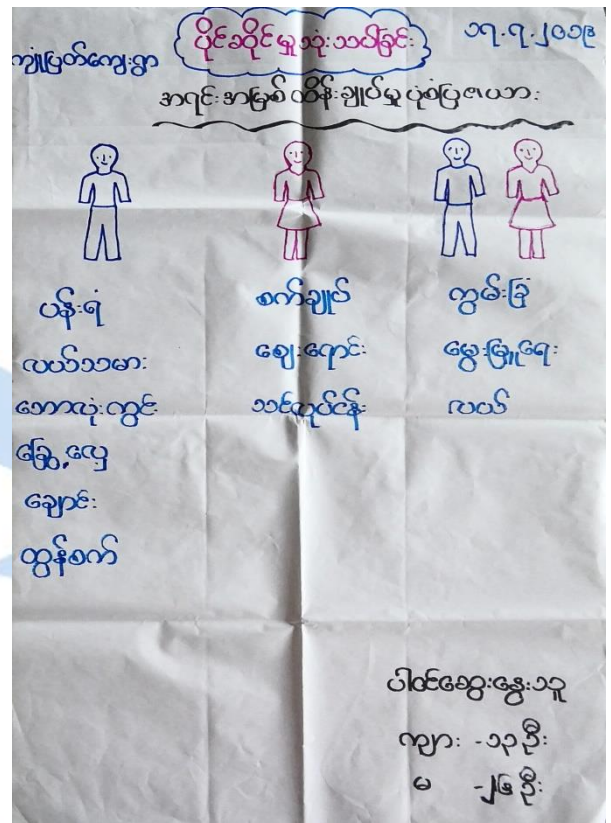 ကျုံပြတ်ကျေးရွာ
ပိုင်ဆိုင်မှုသုံးသပ်ခြင်း
၁၇.၇.၂၀၁၉
အရင်းအမြစ်ထိန်းချုပ်မှုပုံစံပြဇယား
ပန်းရံ
လယ်သမား
ဘောလုံးကွင်း
ခြွေ့လှေ့
ချောင်း
ထွန်စက်
စက်ချုပ်
ဈေးရောင်း
သင်လုပ်ငန်း
ကွမ်းခြံ
မွေးမြူရေး
လယ်
ပါဝင်ဆွေးနွေးသူ
ကျား -၁၃ဦး
မ -၂၆ဦး